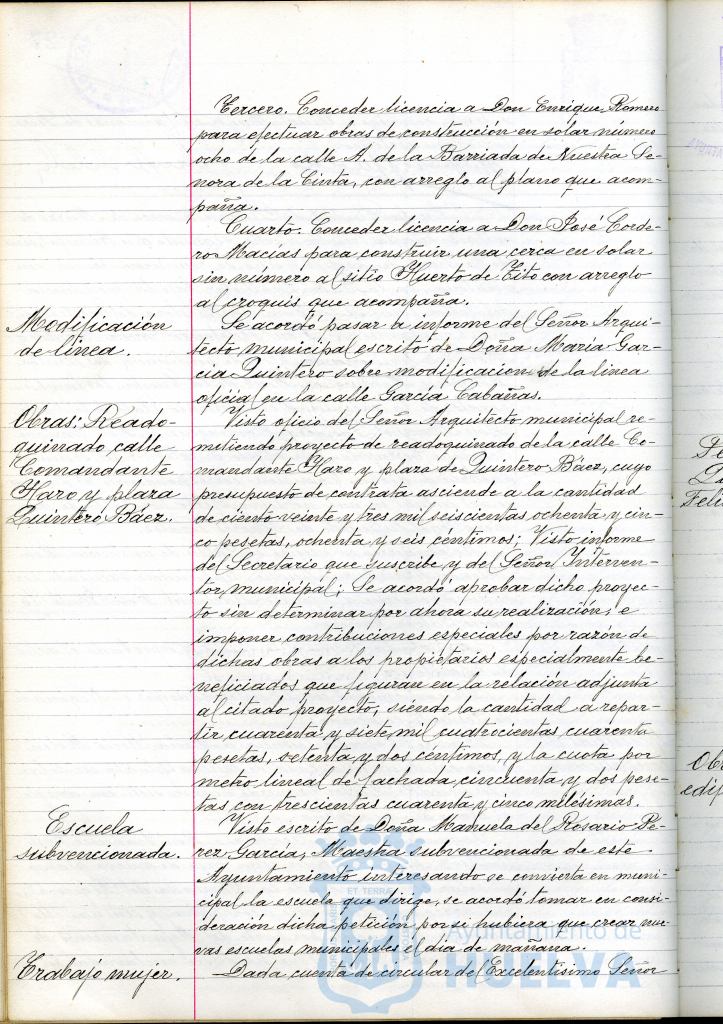 Tercero. Conceder licencia a Don Enrique Romero
para efectuar obras de construcción en solar número
ocho de la calle A. de la Barriada de Nuestra Se-
ñora de la Cinta, con arreglo al plano que acom-
paña.
Cuarto. Conceder licencia a Don José Corde-
ro Macías para construir una cerca en solar
sin número al sitio Huerto de Tito con arreglo
al croquis que acompaña.
Modificación
de línea.
Se acordó pasar a informe del Señor Arqui-
tecto municipal escrito de Doña María Gar-
cía Quintero sobre modificacion de la linea
oficial en la calle García Cabañas.
Obras: Readо-
quinado calle
Comandante
Haro y plaza
Quintero Báez.
Visto oficio del Señor Arquitecto municipal re-
mitiendo proyecto de readoquinado de la calle Co-
mandante Haro y plaza de Quintero Báez, cuyo
presupuesto de contrata asciende a la cantidad
de ciento veinte y tres mil seiscientas ochenta y cin-
co pesetas, ochenta y seis centimos; Visto informe
del Secretario que suscribe y del Señor Interven-
tor municipal; Se acordó aprobar dicho proyec-
to sin determinar por ahora su realización, e
imponer contribuciones especiales por razón de
dichas obras a los propietarios especialmente be-
neficiados que figuran en la relación adjunta
al citado proyecto, siendo la cantidad a repar-
tir cuarenta y siete mil cuatrocientas cuarenta
pesetas, setenta y dos céntimos, y la cuota por
metro lineal de fachada cincuenta y dos pese-
tas con trescientas cuarenta y cinco milésimas.
Escuela
subvencionada.
Visto escrito de Doña Manuela del Rosario Pé-
rez García, Maestra subvencionada de este
Ayuntamiento interesando se convierta en muni-
cipal la escuela que dirige, se acordó tomar en consi-
deración dicha petición por si hubiera que crear nue-
vas escuelas municipales el dia de mañana.
Trabajo mujer.
Dada cuenta de circular del Excelentísimo Señor
Ayuntamiento de
HUELVA